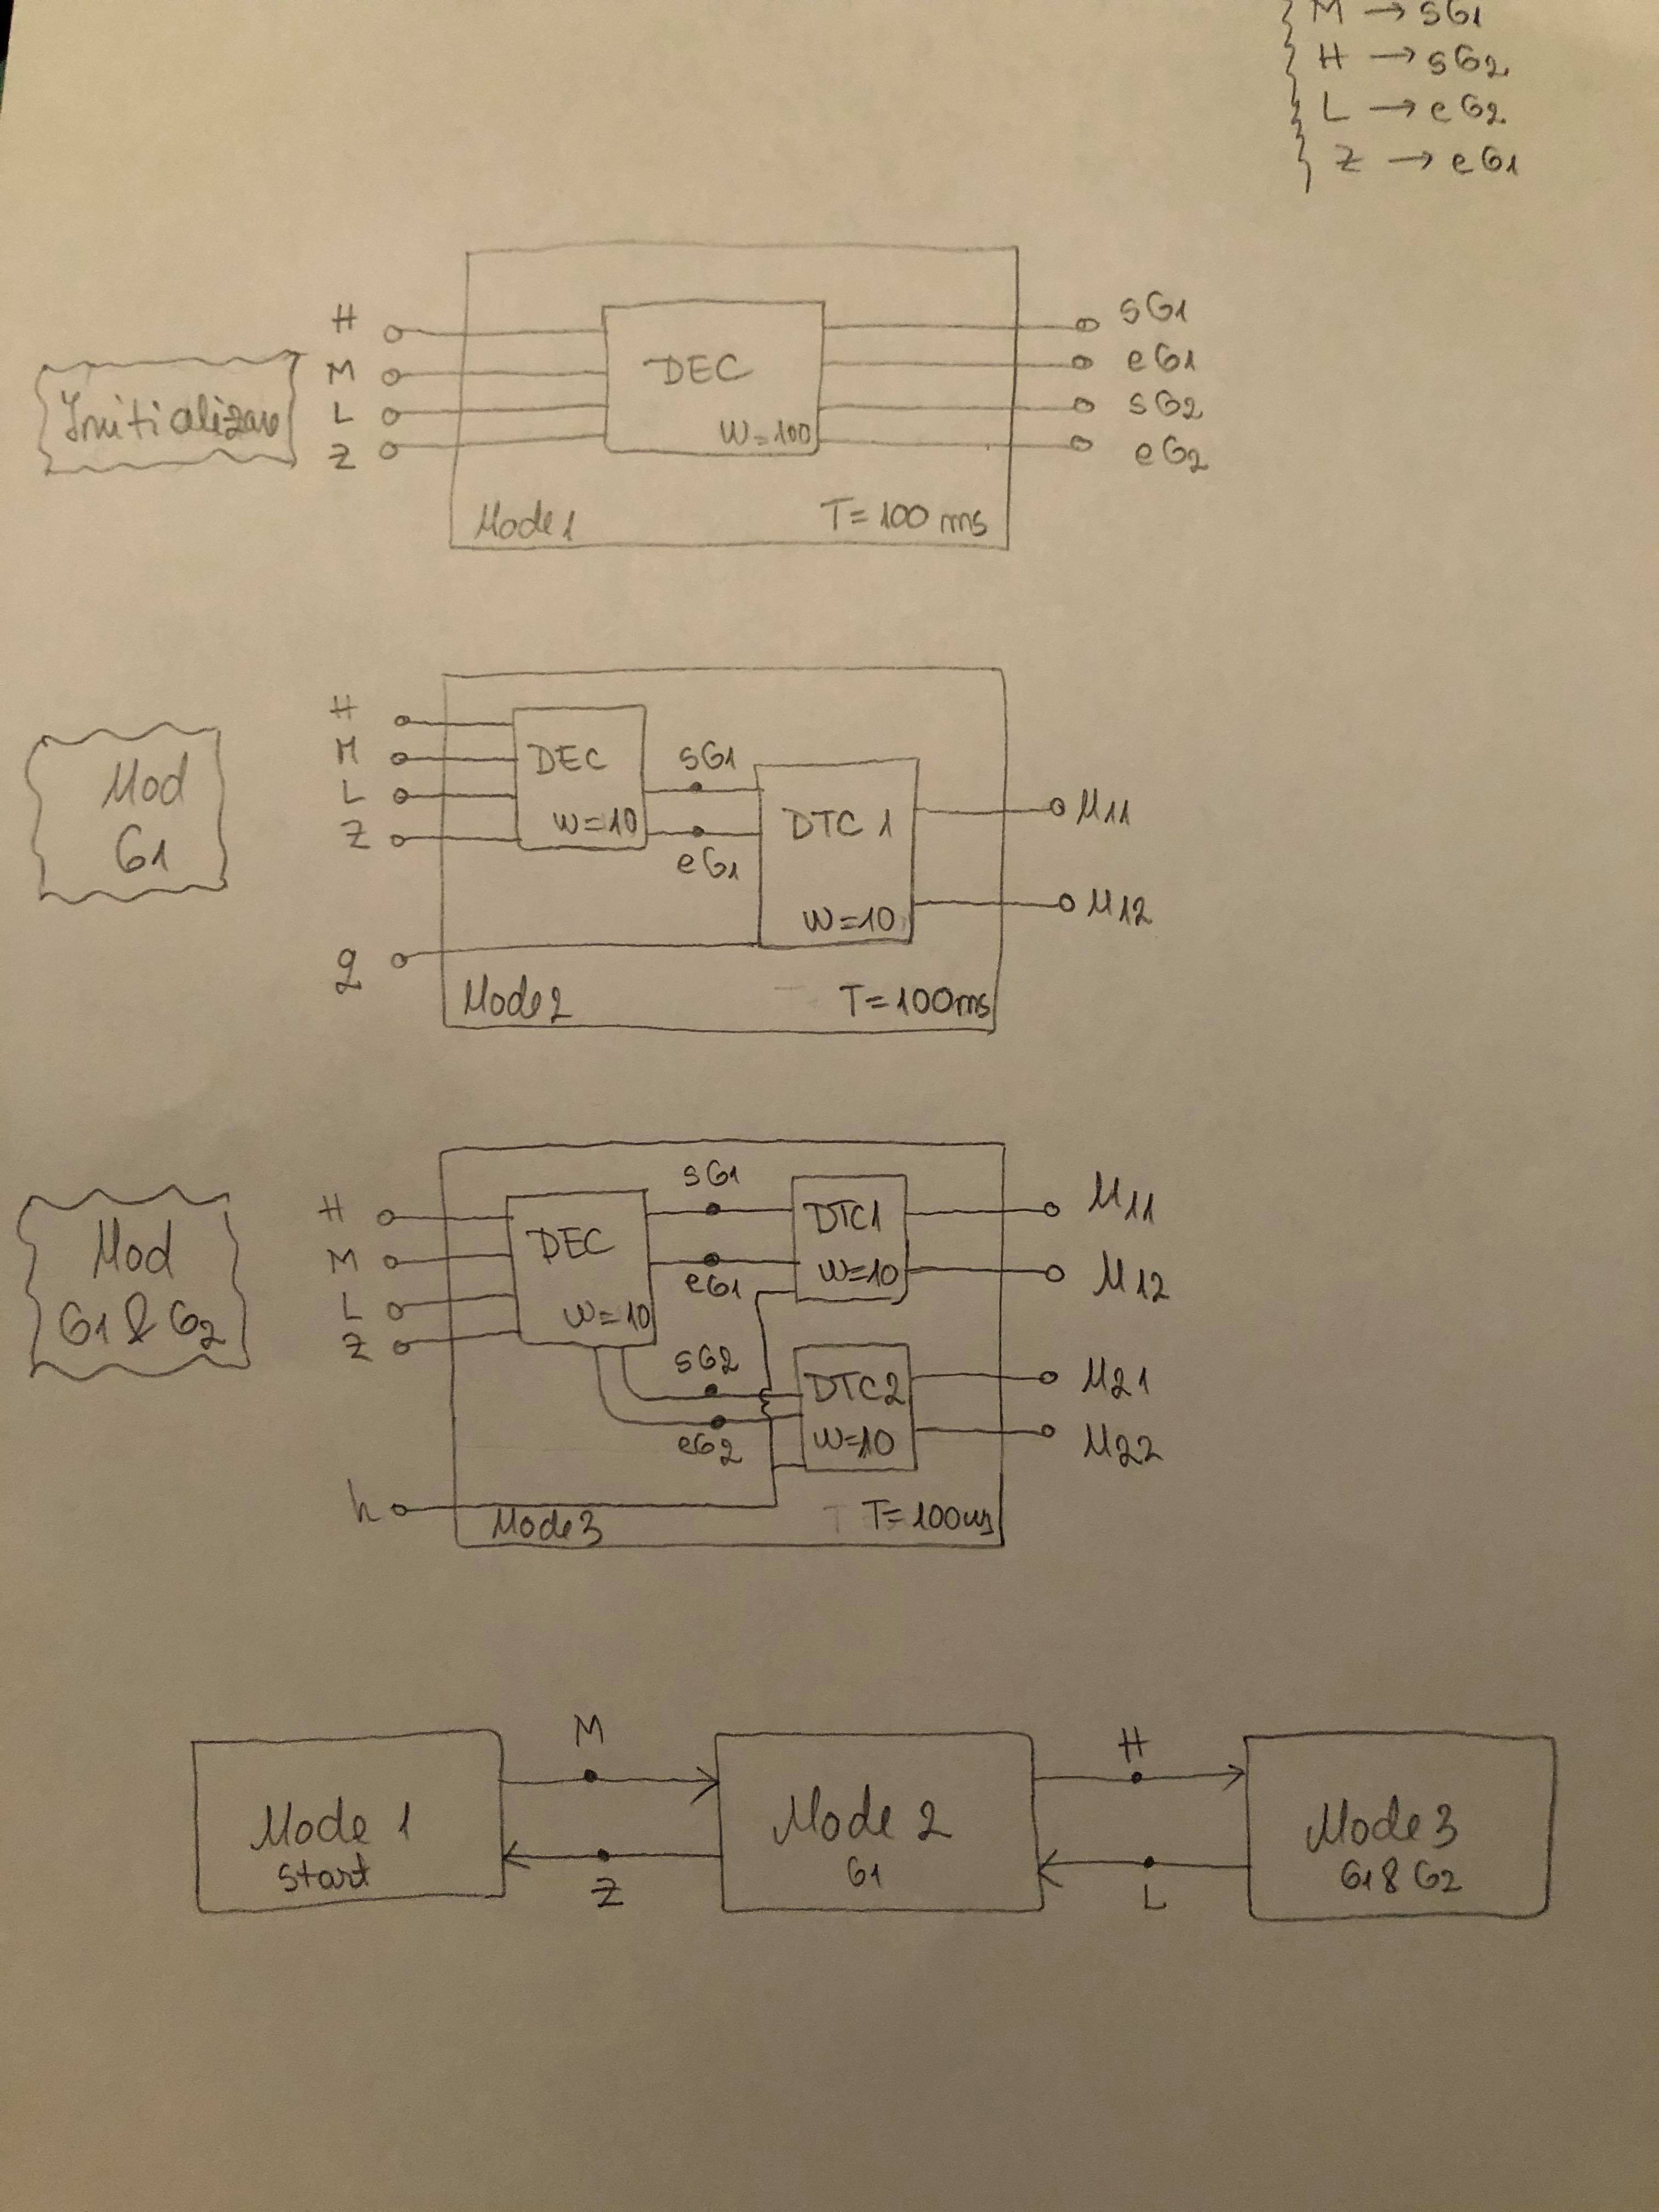 M → sG1
H → sG2
L → eG2
Z → eG1
Initializare
H
M
L
Z
DEC
W=100
sG1
eG1
sG2
eG2
Mode1
T=100 ms
Mod
G1
H
M
L
Z
g
DEC
W=10
sG1
eG1
DTC 1
W=10
M11
M12
Mode2
T=100ms
Mod
G1 & G2
H
M
L
Z
h
DEC
W=10
sG1
eG1
sG2
eG2
DTC1
W=10
DTC2
W=10
M11
M12
M21
M22
Mode3
T=100ms
Mode 1
Start
M
Z
Mode 2
G1
H
L
Mode 3
G1 & G2